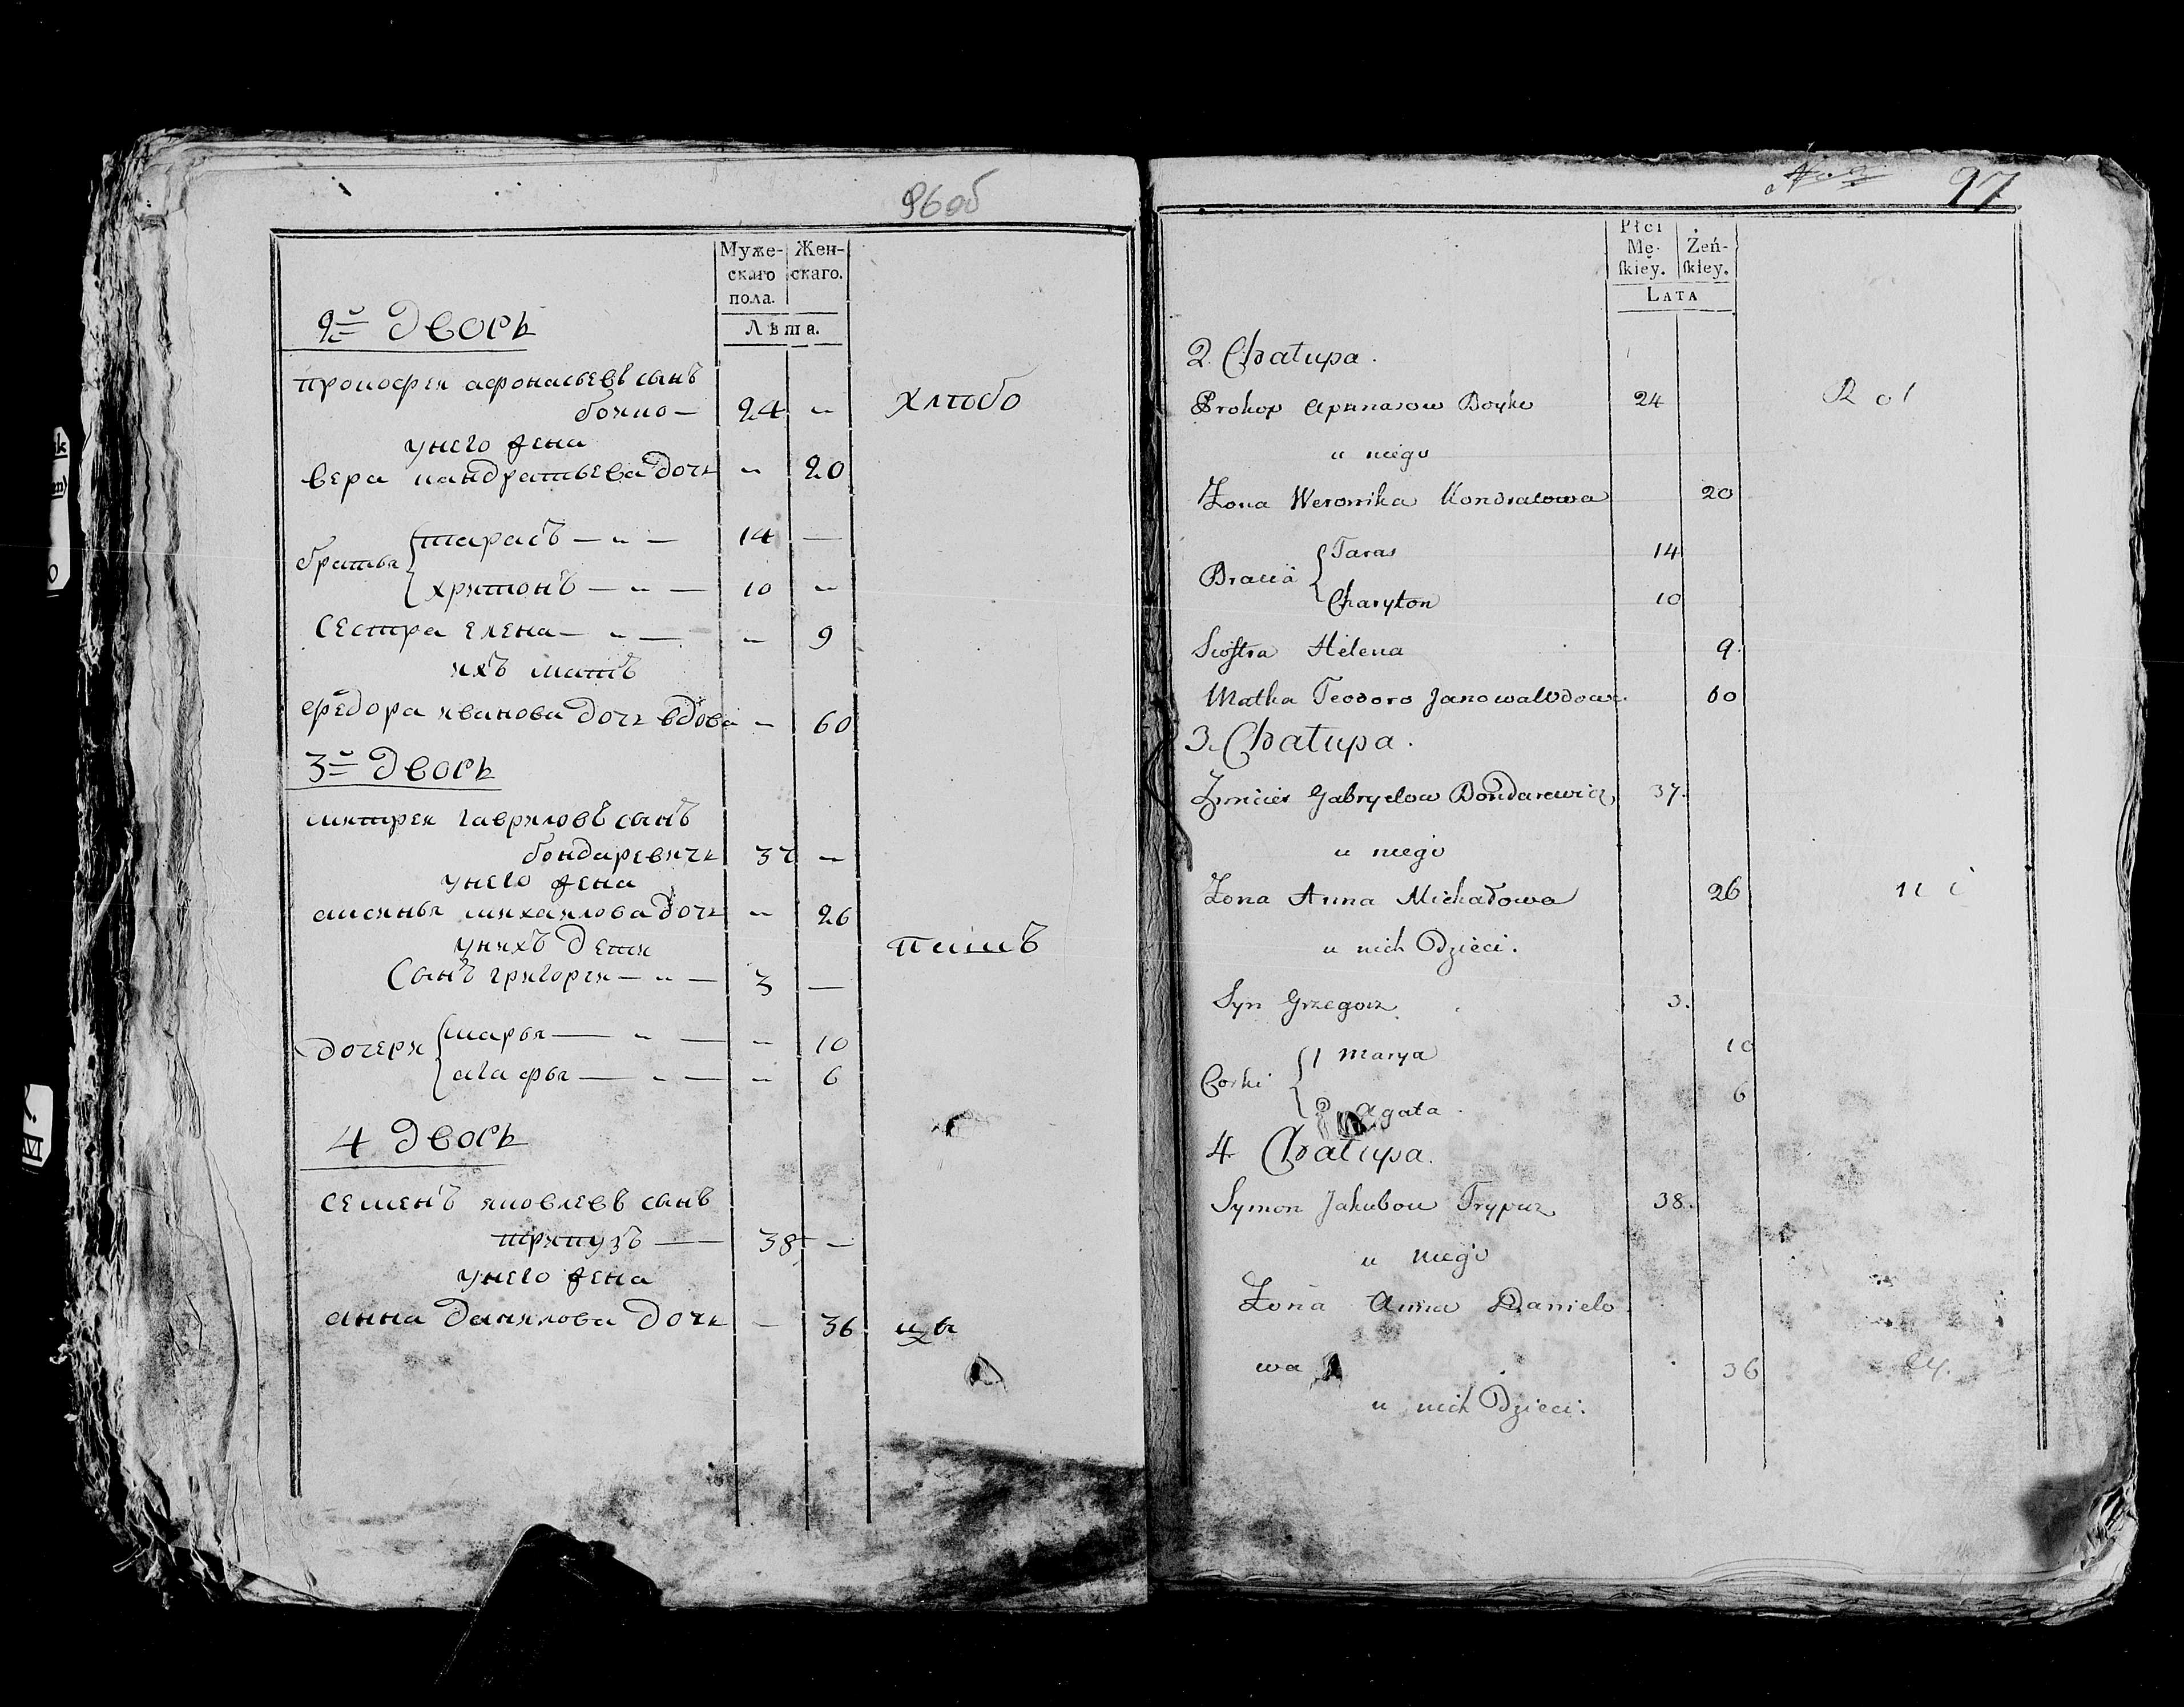 96 об
Муже- Жен-
скаго скаго.
пола.
Лѣта.
2й дворъ
прокофеи афонасьевъ сынъ
бойко — 24 —
унего жена
вера кандратьева дочь — 20
братья
тарасъ — — 14 —
харитонъ — — 10 —
сестра елена — — — 9
ихъ мать
федора иванова дочь вдова — 60
3й дворъ
дмитреи гавриловъ сынъ
бондаревичь 37 —
унего жена
аксинья михаилова дочь — 26
унихъ дети
сынъ григореи — — 3 —
дочери
марья — — — 10
агафья — — — 6
4 дворъ
семенъ яковлевъ сынъ
трипузъ — 38 —
унего жена
анна данилова дочь — 36
хлѣбо
пашъ
цы
97
Płci
Mę- Żeń-
skiey. skiey.
LATA
2. Chałupa.
Prokop Apanasow Boyko 24
u niego
Żona Weronika Kondratowa 20
Bracia
Taras 14
Charyton 10
Siostra Helena 9.
Matka Teodora Janowa Wdowa. 60
3. Chałupa.
Gabryelow Bondarewicz 37.
u niego
Żona Anna Michałowa 26
u nich Dzieci.
Syn Grzegorz 3.
Corki
1 Marya 10
2 Agata. 6
4 Chałupa.
Symon Jakubow Trypuz 38.
u niego
Żona Anna Danielo
wa 36
u nich Dzieci.
R o l
n i
cy.